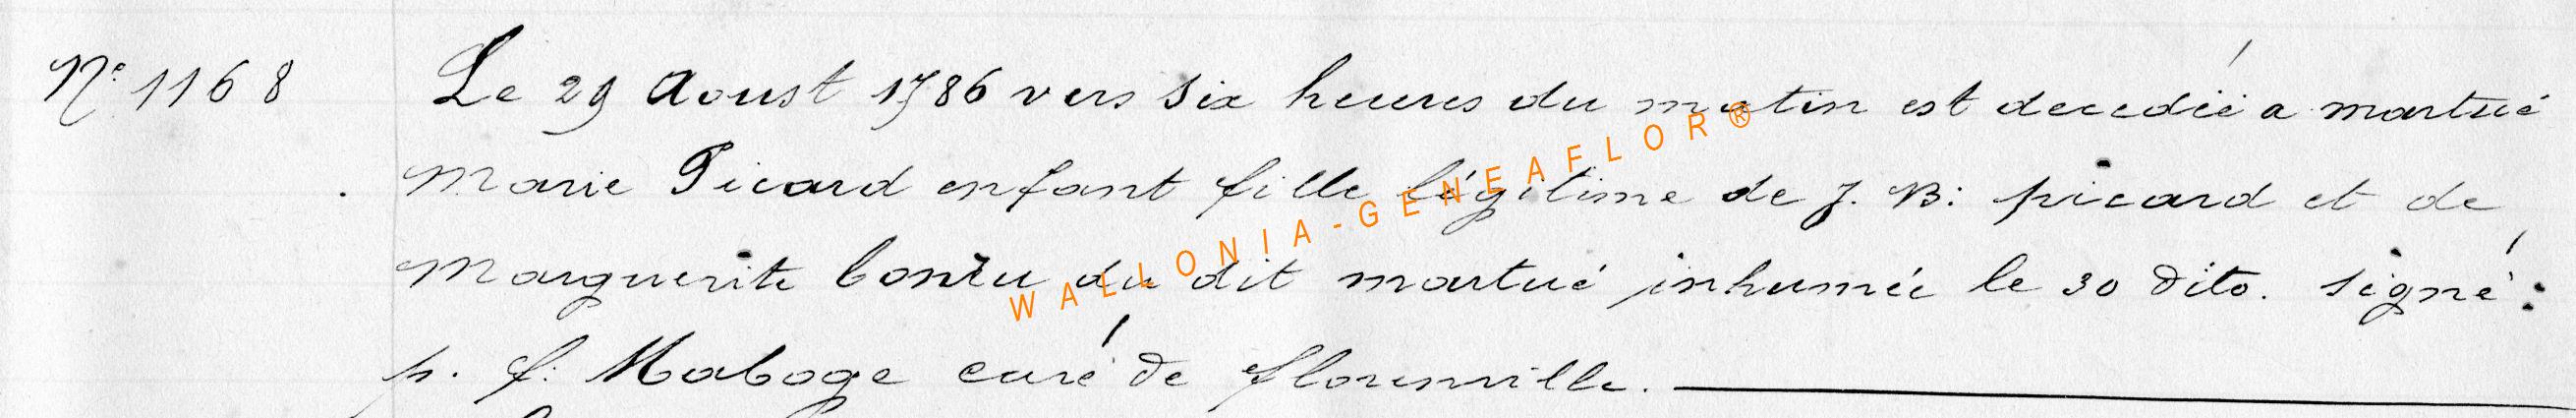 N° 1168 Le 29 Aoust 1786 vers six heures du matin est decedée a martué
Marie Picard enfant fille légitime de J. B: picard et de
Marguerite du dit martué inhumée le 30 dito. signé:
p. f: Maboge curé de florenville.
WALLONIA-GENEAFLOR®